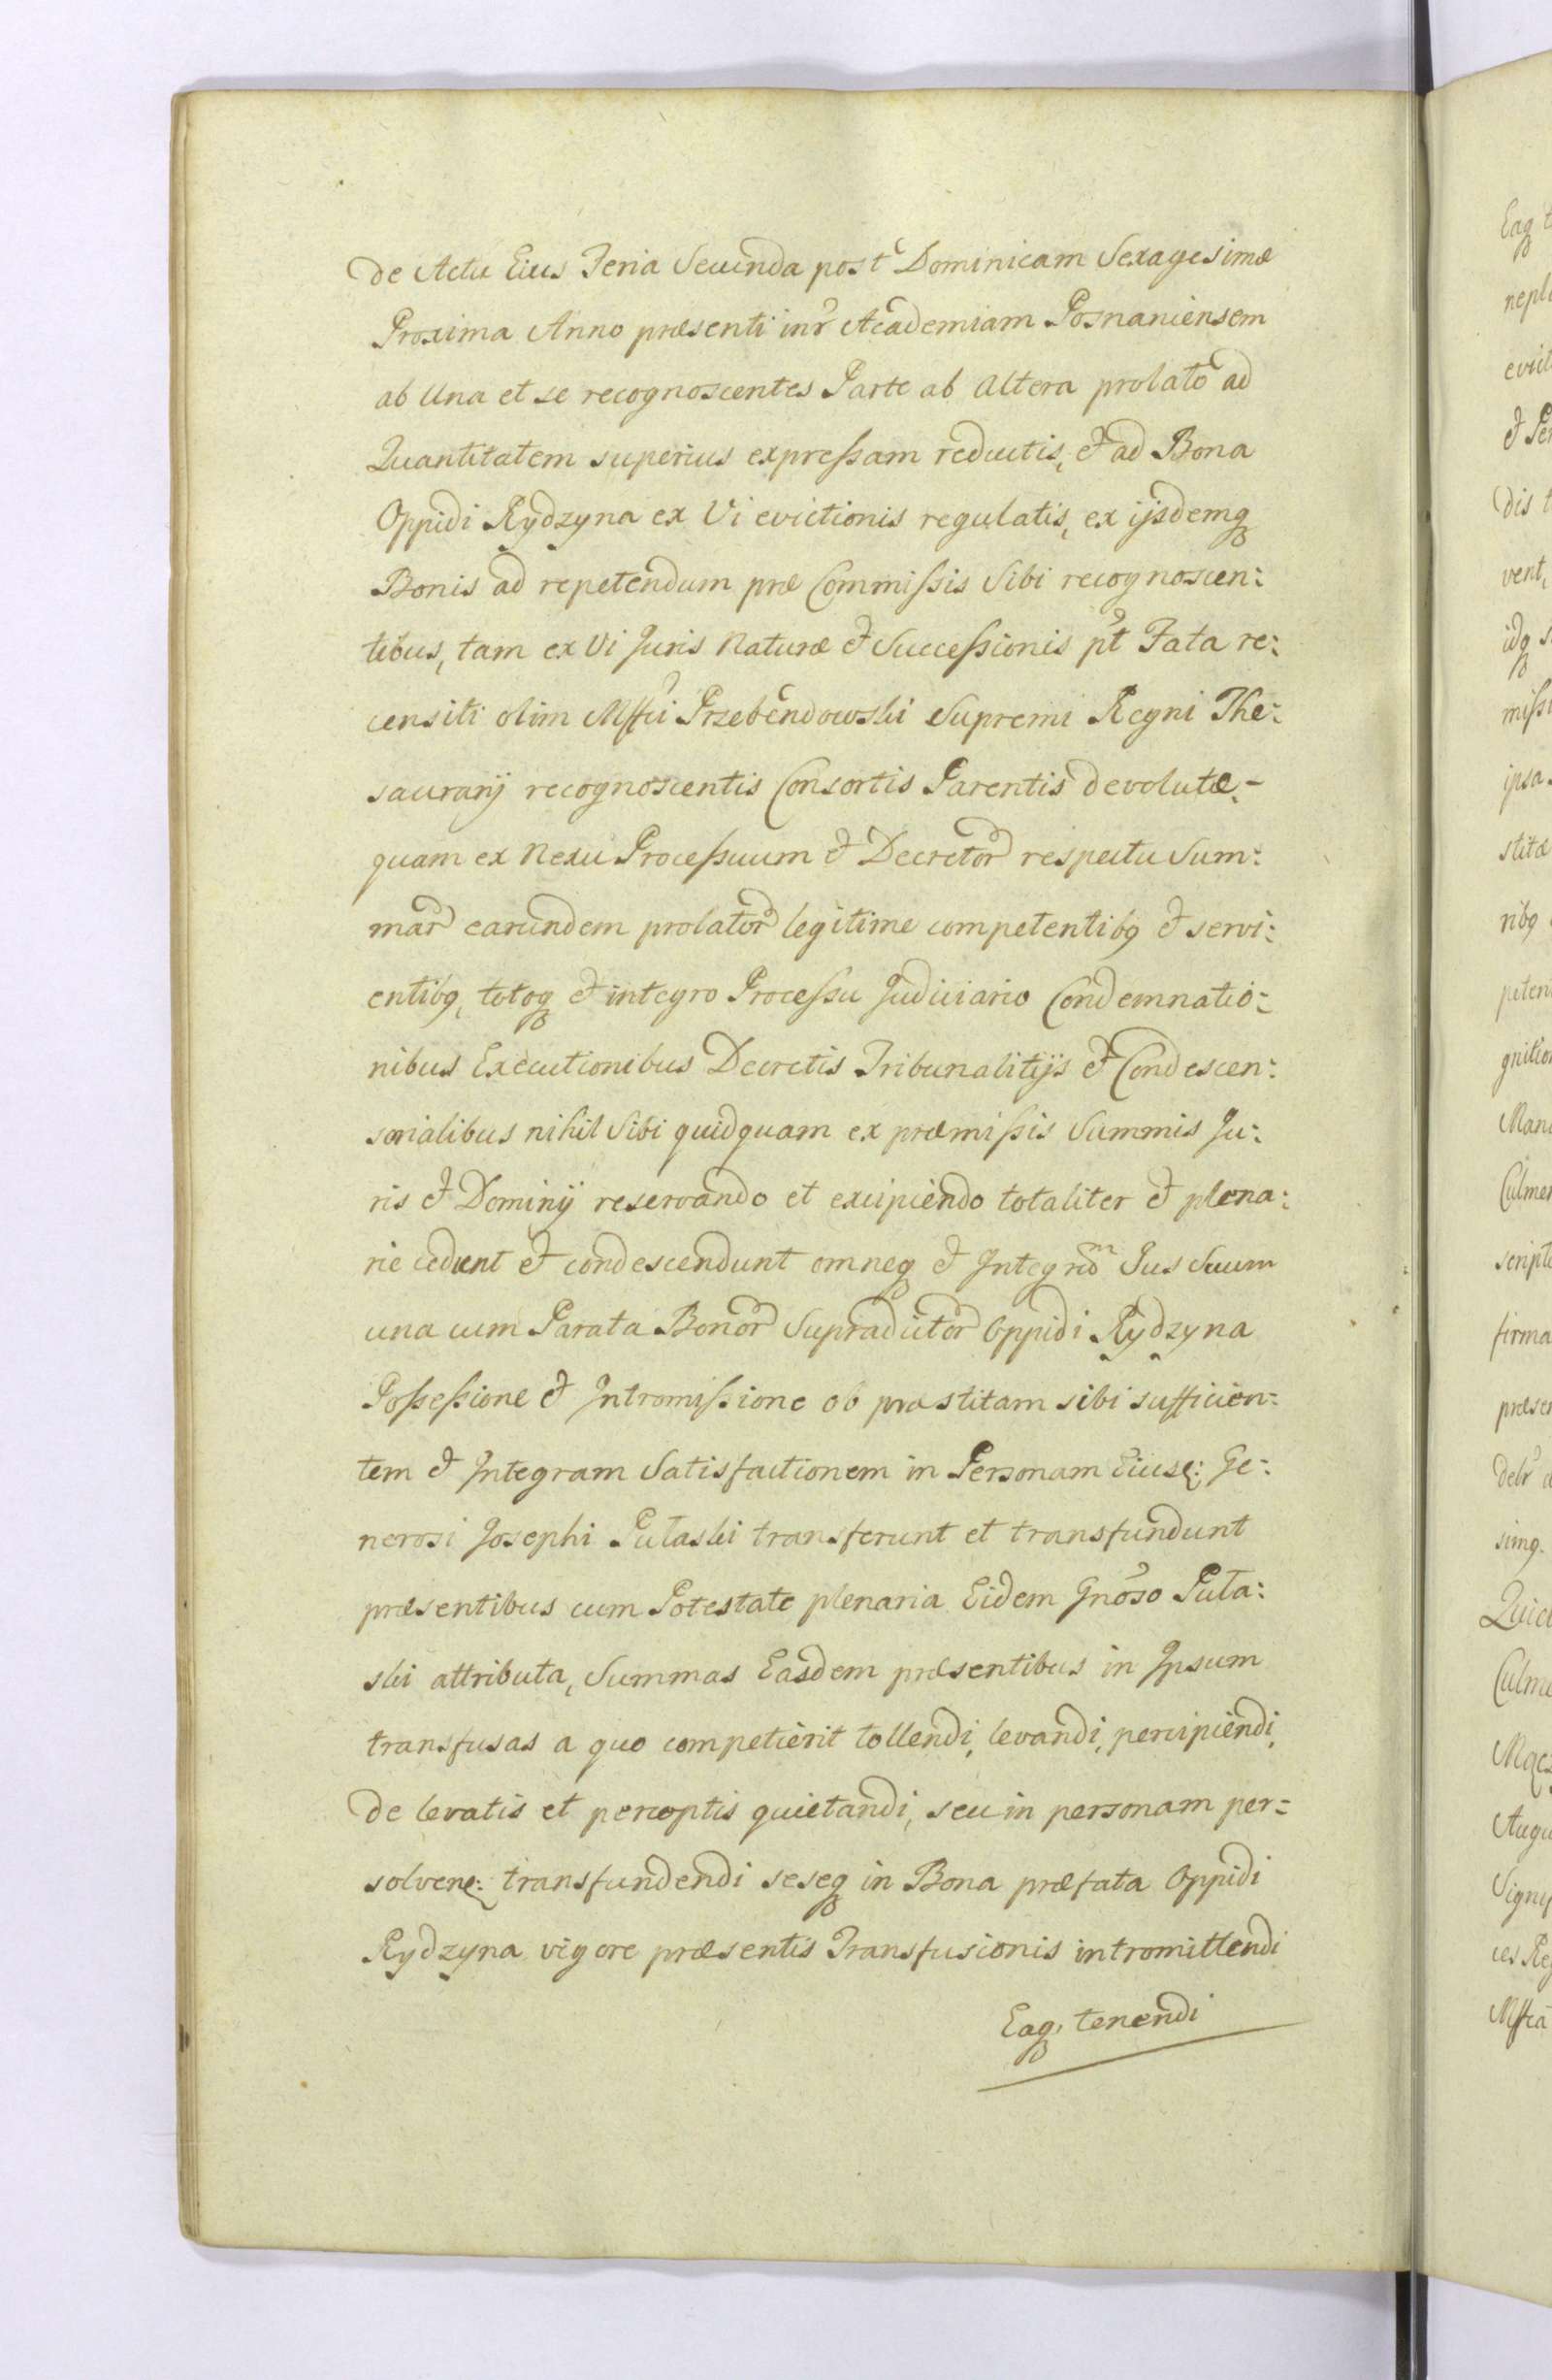 de Actu Eius Feria Secunda post Dominicam Sexagesimæ
Proxima Anno præsenti intr Academiam Posnaniensem
ab Una et se recognoscentes Parte ab altera prolato ad
Quantitatem superius expreſsam reductis, et ad Bona
Oppidi Rydzyna ex Vi evictionis regulatis, ex ijsdemq
Bonis ad repetendum præ Commiſsis Sibi recognoscen:
tibus, tam ex Vi Juris Naturæ et Succeſsionis pt Fata re:
censiti olim Mffci Przebendowski Supremi Regni The:
saurarij recognoscentis Consortis Parentis devolutæ,-
quam ex Nexu Proceſsuum et Decretor respectu Sum:
mar earundem prolator legitime competentibq et servi:
entibq, totoq et integro Proceſsu Judiciario Condemnatio:
nibus Executionibus Decretis Tribunalitijs et Condescen:
sorialibus nihil Sibi quidquam ex præmiſsis Summis Ju:
ris et Dominij reservando et excipiendo totaliter et plena:
rie cedunt et condescendunt omneq et Integrum Jus Suum
una cum Parata Bonor Supradictor Oppidi Rydzyna
Poſseſsione et Intromiſsione ob præstitam sibi sufficien:
tem et Integram Satisfactionem in Personam Eiusę: Ge:
nerosi Josephi Pułaski transferunt et transfundunt
præsentibus cum Potestate plenaria Eidem Gnoso Puła:
ski attributa, Summas Easdem præsentibus in Ipsum
transfusas a quo competierit tollendi, levandi, percipiendi,
de levatis et perceptis quietandi, seu in personam per=
solvenę: transfundendi seseq in Bona præfata Oppidi
Rydzyna vigore præsentis Transfusionis intromittendi
Eaq, tenendi